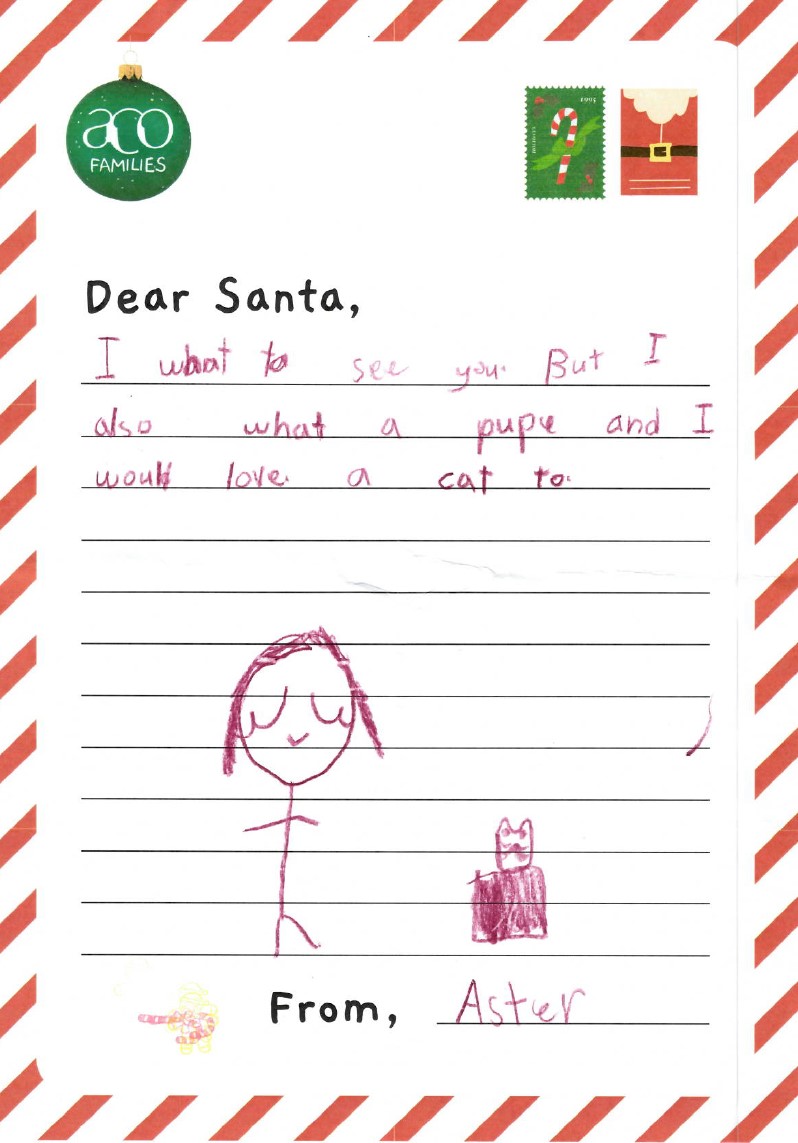 aco
FAMILIES
1991
Dear Santa,
I what to see you. But I
also what a pupe and I
would love a cat to.
From, Aster